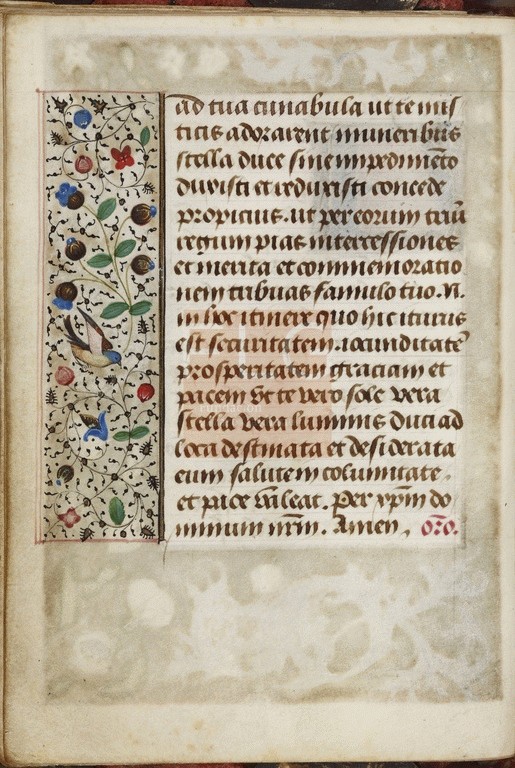 ad tua cunabula ut te mis
ticis adorarent muneribus
stella duce sine impedimēto
duxisti et reduxisti concede
propicius. ut per eorum triū
regum pias intercessiones
et merita et commemoratio
nem tribuas famulo tuo. N.
in hoc itinere quo hic iturus
est securitatem. iocunditatē
prosperitatem graciam et
pacem Ut te vero sole vera
stella vera luminis duci ad
loca destinata et desiderata
cum salutem columitate.
et pace valeat. Per xp̄m do
minum nr̄m. Amen, or̄o.
fundación